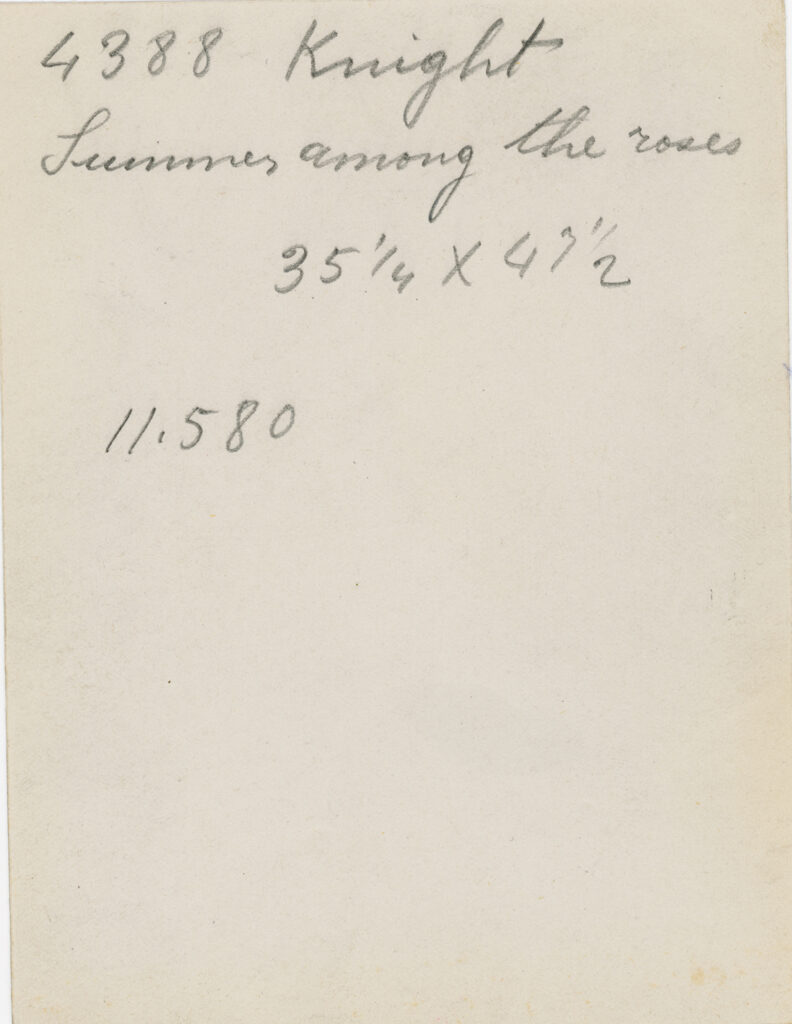 4388 Knight
Summer among the roses
35 1/4 X 47 1/2
11.580